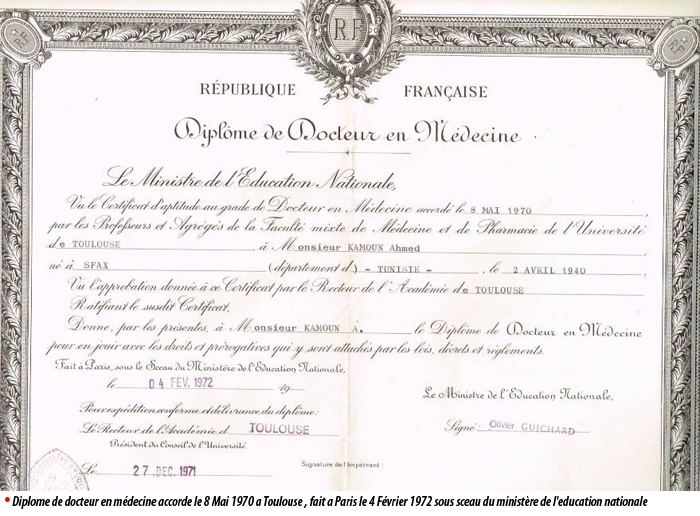 RF
RÉPUBLIQUE FRANÇAISE
Diplôme de Docteur en Médecine.
Le Ministre de l'Education Nationale,
Vu le Certificat d'aptitude au grade de Docteur en Médecine accordé le 8 MAI 1970,
par les Professeurs et Agrégés de la Faculté mixte de Médecine et de Pharmacie de l'Université
de TOULOUSE, à Monsieur KAMOUN Ahmed
né à SFAX (département d) - TUNISIE -, le 2 AVRIL 1940,
Vu l'approbation donnée à ce Certificat par le Recteur de l'Académie de TOULOUSE
Ratifiant le susdit Certificat,
Donne, par les présentes, à Monsieur KAMOUN A. le Diplôme de Docteur en Médecine
pour en jouir avec les droits et prérogatives qui y sont attachés par les lois, décrets et règlements.
Fait à Paris, sous le Sceau du Ministère de l'Education Nationale,
le 04 FEV. 1972 19
Le Ministre de l'Education Nationale,
Pour expédition conforme et délivrance du diplôme:
Signé: Olivier GUICHARD
Le Recteur de l'Académie d TOULOUSE
Président du Conseil de l'Université
Signature de l'Impétrant
Le 27 DEC. 1971
• Diplome de docteur en médecine accorde le 8 Mai 1970 a Toulouse , fait a Paris le 4 Février 1972 sous sceau du ministère de l'education nationale